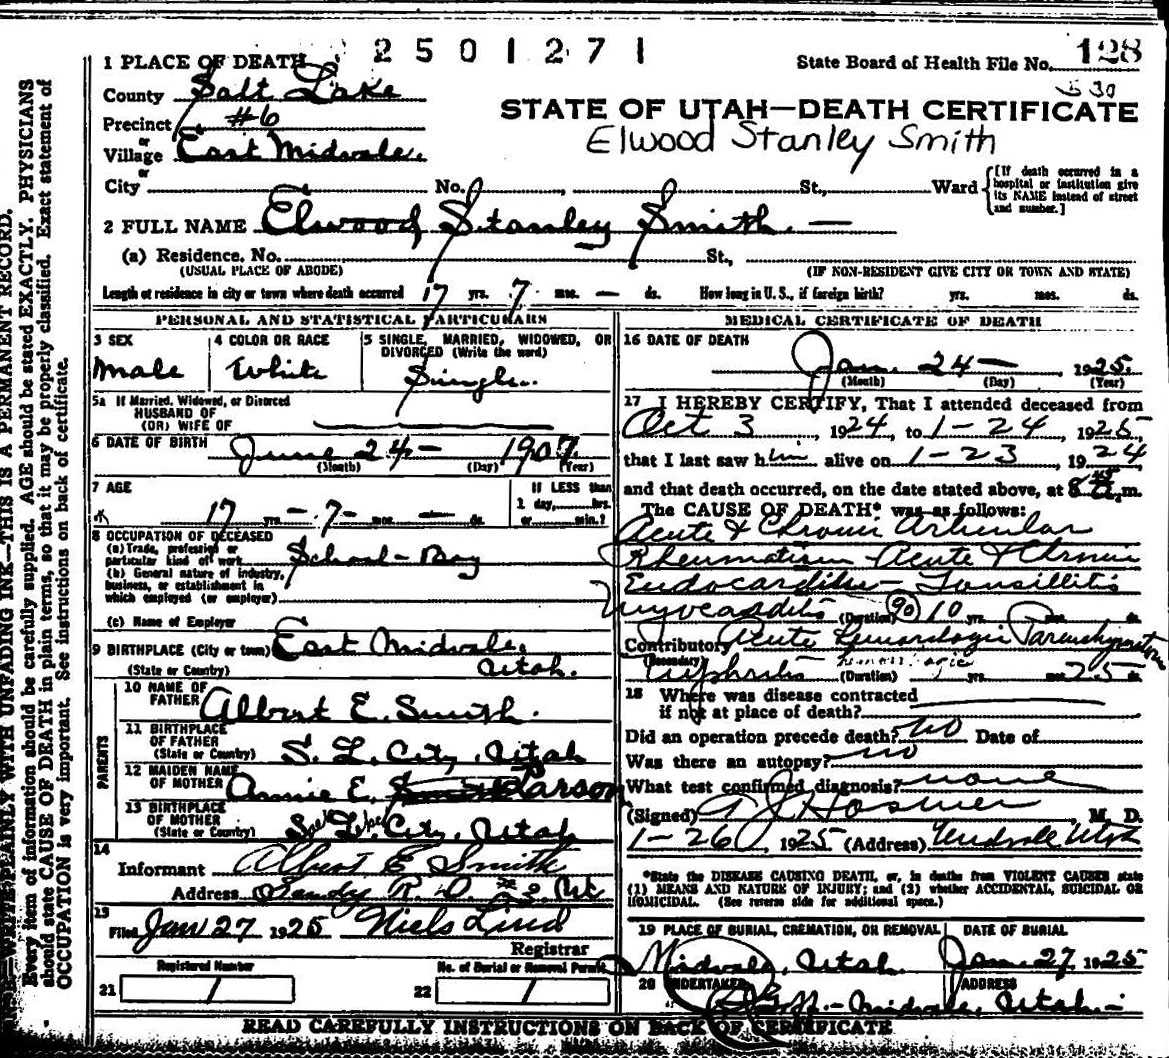 2501271
1 PLACE OF DEATH
State Board of Health File No. 128
530
County Salt Lake
STATE OF UTAH—DEATH CERTIFICATE
Precinct #6
Elwood Stanley Smith
or
Village East Midvale.
or
City No. St., Ward
[If death occurred in a hospital or institution give its NAME instead of street and number.]
2 FULL NAME Elwood Stanley Smith. —
(a) Residence. No. St.,
(USUAL PLACE OF ABODE) (IF NON-RESIDENT GIVE CITY OR TOWN AND STATE)
Length of residence in city or town where death occurred 17 yrs. 7 mos. — ds. How long in U. S., if foreign birth? yrs. mos. ds.
PERSONAL AND STATISTICAL PARTICULARS
3 SEX
Male
4 COLOR OR RACE
White
5 SINGLE, MARRIED, WIDOWED, OR
DIVORCED (Write the word)
Single.
5a If Married, Widowed, or Divorced
HUSBAND OF
(OR) WIFE OF
6 DATE OF BIRTH June 24 — 1907
(Month) (Day) (Year)
7 AGE
17 yrs. — 7 — mos. — ds.
IF LESS than
1 day, hrs.
or min.?
8 OCCUPATION OF DECEASED
(a) Trade, profession or
particular kind of work School-Boy
(b) General nature of industry,
business, or establishment in
which employed (or employer)
(c) Name of Employer
9 BIRTHPLACE (City or town) East Midvale,
(State or Country) Utah.
PARENTS
10 NAME OF
FATHER Albert E. Smith.
11 BIRTHPLACE
OF FATHER
(State or Country) S. L. City, Utah
12 MAIDEN NAME
OF MOTHER Annie E. Parson
13 BIRTHPLACE
OF MOTHER
(State or Country) Salt Lake City, Utah
14
Informant Albert E Smith
Address Sandy R. D. #2. Ut
15
Filed Jan 27 1925 Niels Lind
Registrar
Registered Number No. of Burial or Removal Permit
21 1 22 1
MEDICAL CERTIFICATE OF DEATH
16 DATE OF DEATH
Jan. 24 — , 1925.
(Month) (Day) (Year)
17 I HEREBY CERTIFY, That I attended deceased from
Oct 3, 1924, to 1-24, 1925,
that I last saw him alive on 1-23, 1924
and that death occurred, on the date stated above, at 8 45 a. m.
The CAUSE OF DEATH* was as follows:
Acute & Chronic Articular
Rheumatism - Acute & Chronic
Endocarditis - Tonsillitis
Myocarditis (Duration) 90 10 yrs. ds.
Contributory Acute Hemorrhagic Parenchymatous
(Secondary) Nephritis hemorrhagic (Duration) yrs. mos. 25 ds.
18 Where was disease contracted
if not at place of death?
Did an operation precede death? no Date of
Was there an autopsy? no
What test confirmed diagnosis? none
(Signed) A J Hosmer M. D.
1-26, 1925 (Address) Midvale Utah
*State the DISEASE CAUSING DEATH, or, in deaths from VIOLENT CAUSES state
(1) MEANS AND NATURE OF INJURY; and (2) whether ACCIDENTAL, SUICIDAL OR
HOMICIDAL. (See reverse side for additional space.)
19 PLACE OF BURIAL, CREMATION, OR REMOVAL DATE OF BURIAL
Midvale, Utah. Jan. 27, 1925
20 UNDERTAKER ADDRESS
Midvale, Utah.—
READ CAREFULLY INSTRUCTIONS ON BACK OF CERTIFICATE
WRITE PLAINLY WITH UNFADING INK—THIS IS A PERMANENT RECORD.
Every item of information should be carefully supplied. AGE should be stated EXACTLY. PHYSICIANS
should state CAUSE OF DEATH in plain terms, so that it may be properly classified. Exact statement of
OCCUPATION is very important. See instructions on back of certificate.